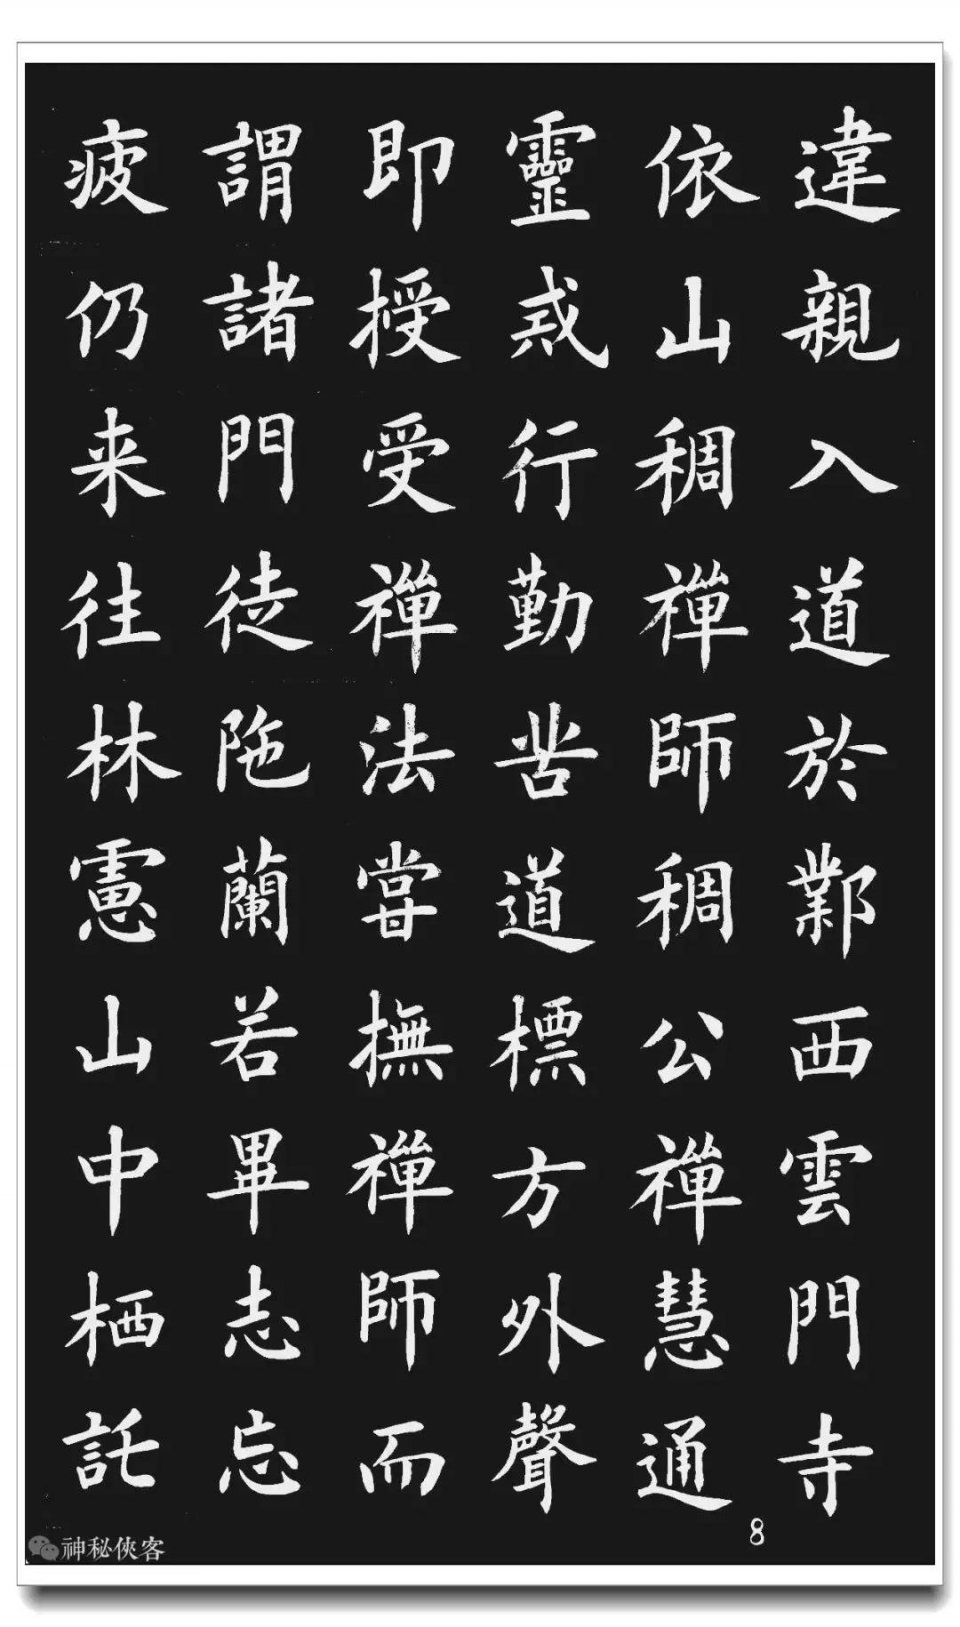 違親入道於鄴西雲門寺
依山稠禪師稠公禪慧通
靈戒行勤苦道標方外聲
即授受禪法甞撫禪師而
謂諸門徒陁蘭若畢志忘
疲仍来往林慮山中栖託
8
神秘俠客